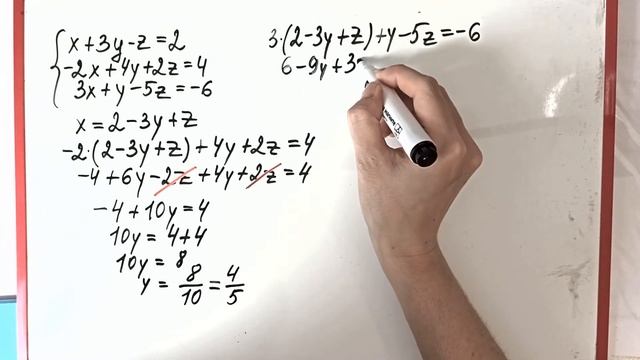 x+3y-z=2
-2x+4y+2z=4
3x+y-5z=-6
x=2-3y+z
-2·(2-3y+z)+4y+2z=4
-4+6y-2z+4y+2z=4
-4+10y=4
10y=4+4
10y=8
y=8/10=4/5
3·(2-3y+z)+y-5z=-6
6-9y+3